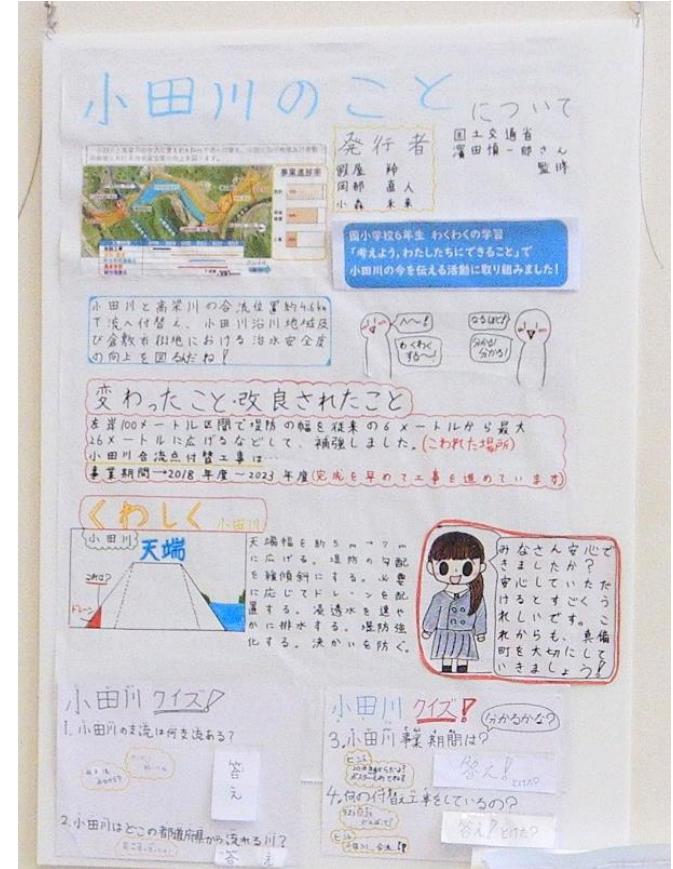 小田川のこと
について
国土交通省
濱田慎一郎さん
監修
発行者
直人
小森 未来
事業進捗率
園小学校6年生 わくわくの学習
「考えよう,わたしたちにできること」で
小田川の今を伝える活動に取り組みました!
小田川と高梁川の合流位置約4.6km
下流へ付替え、小田川沿川地域及
び倉敷市街地における治水安全度
の向上を図るんだね!
へ〜!
わくわく
する〜!
なるほど!
分かる!
分かる!
変わったこと・改良されたこと
左岸100メートル区間で堤防の幅を従来の6メートルから最大
26メートルに広げるなどして、補強しました。(こわれた場所)
小田川合流点付替工事は…
事業期間→2018年度〜2023年度(完成を早めて工事を進めています)
くわしく 小田川
小田川
天端
これは?
ドレーン
天端幅を約5m→7m
に広げる。堤防の勾配
を緩傾斜にする。必要
に応じてドレーンを配
置する。浸透水を速や
かに排水する。堤防強
化する。決かいを防ぐ。
みなさん安心で
きましたか?
安心していただ
けるとすごくう
れしいです。こ
れからも、真備
町を大切にして
いきましょう!
小田川クイズ!
1.小田川の支流は何支流ある?
答え
2.小田川はどこの都道府県から流れる川?
答え
小田川クイズ!
分かるかな?
3.小田川事業期間は?
ヒント
答え!とけた?
4.何の付替え工事をしているの?
ヒント
答え?とけた?